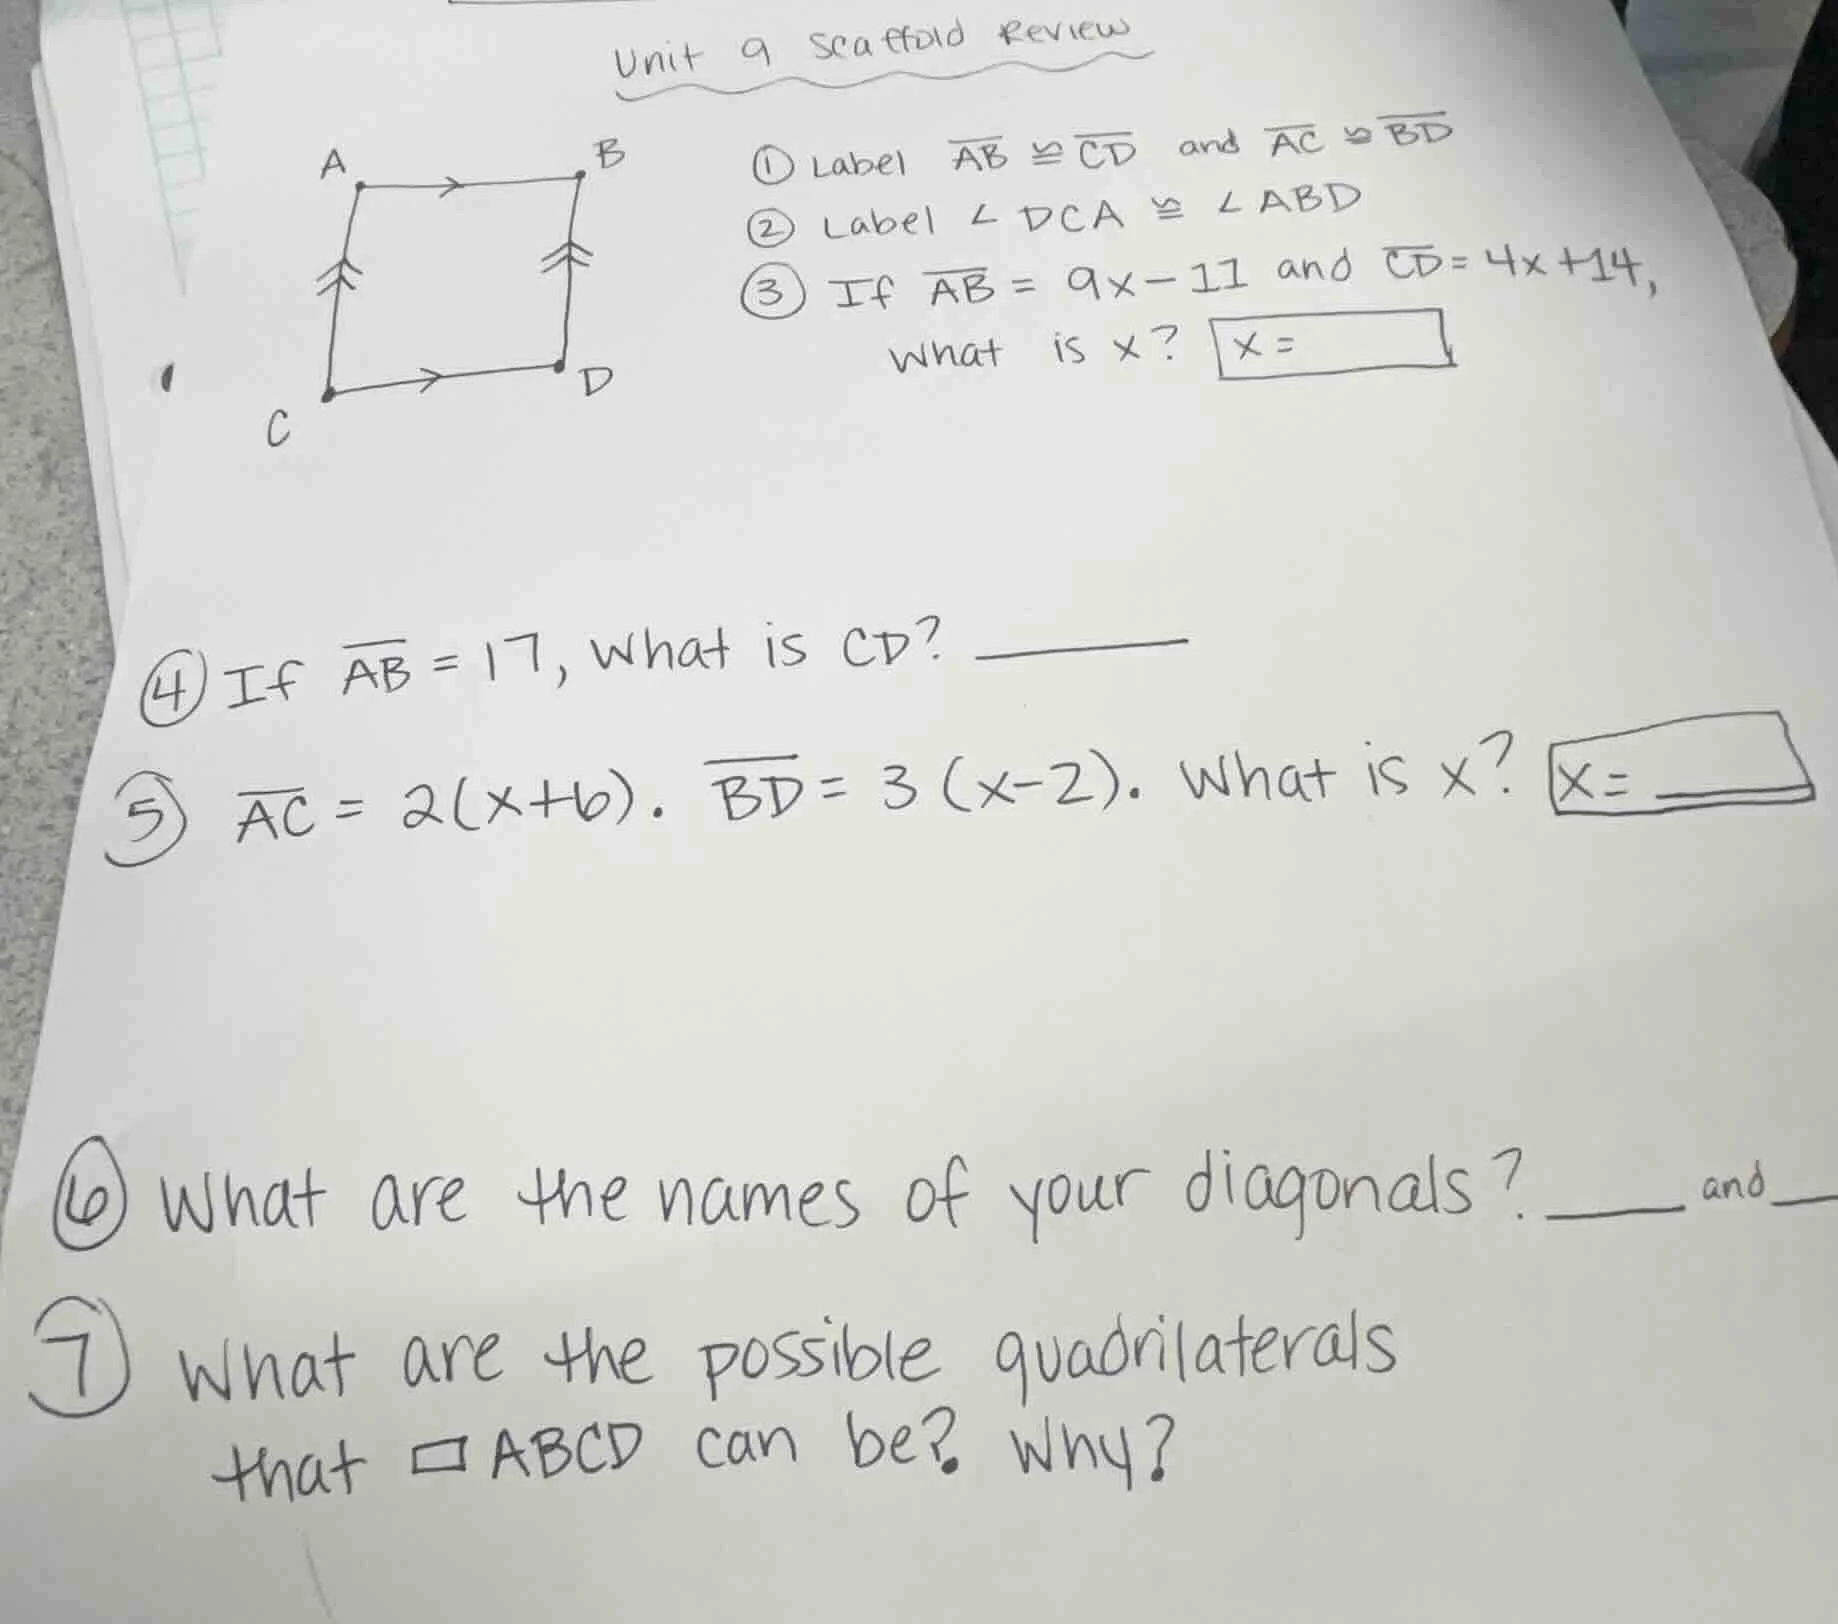 Unit 9 Scaffold Review
A
B
C
D
① Label AB ≅ CD and AC ≅ BD
② Label ∠ DCA ≅ ∠ ABD
③ If AB = 9x - 11 and CD = 4x + 14,
what is x? x =
④ If AB = 17, what is CD? ____
⑤ AC = 2(x+6). BD = 3(x-2). What is x? x = ____
⑥ What are the names of your diagonals? ____ and ____
⑦ What are the possible quadrilaterals
that ▭ ABCD can be? Why?